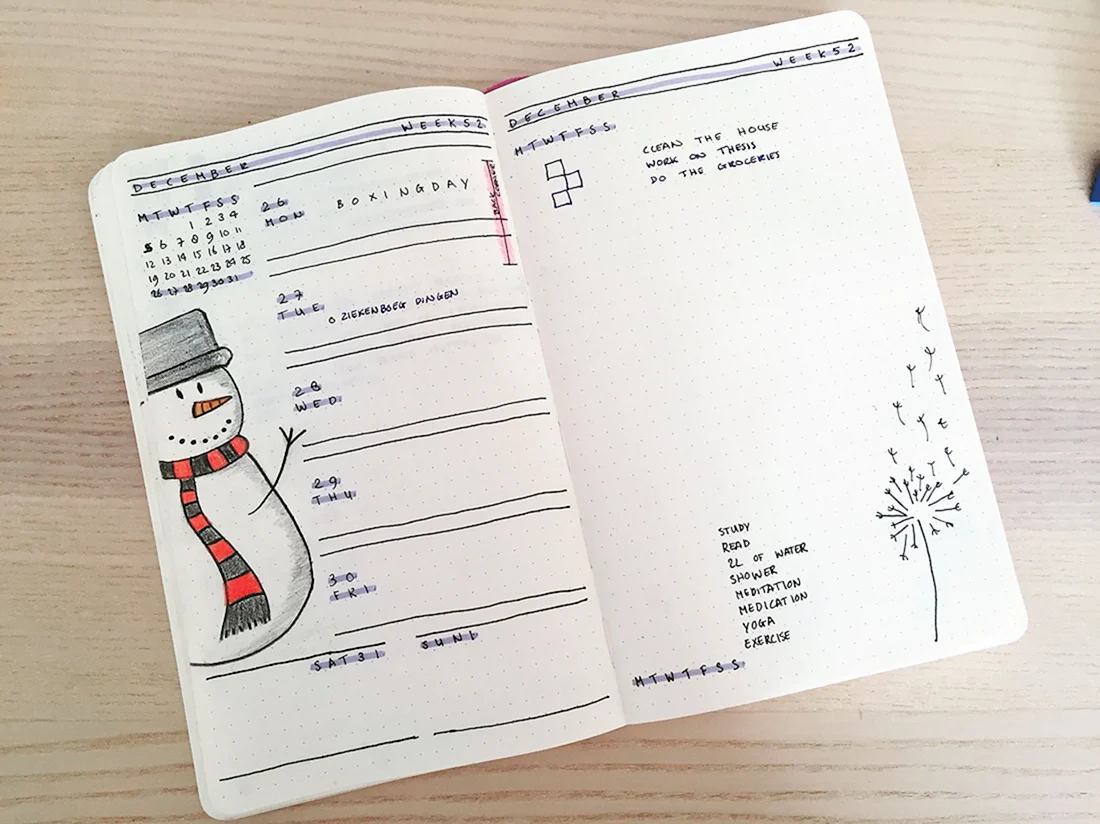 DECEMBER WEEK52
MTWTFSS
1 2 3 4
5 6 7 8 9 10 11
12 13 14 15 16 17 18
19 20 21 22 23 24 25
26 27 28 29 30 31
26
MON
BOXINGDAY
27
TUE
O ZIEKENBOEG DINGEN
28
WED
29
THU
30
FRI
SAT31
SUN1
DECEMBER WEEK52
MTWTFSS
CLEAN THE HOUSE
WORK ON THESIS
DO THE GROCERIES
STUDY
READ
2L OF WATER
SHOWER
MEDITATION
MEDICATION
YOGA
EXERCISE
MTWTFSS